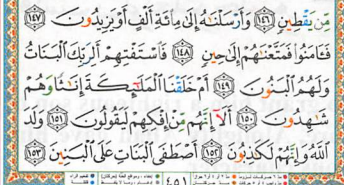 مِّن يَقْطِينٍ ١٤٦ وَأَرْسَلْنَٰهُ إِلَىٰ مِا۟ئَةِ أَلْفٍ أَوْ يَزِيدُونَ ١٤٧
فَـَٔامَنُوا۟ فَمَتَّعْنَٰهُمْ إِلَىٰ حِينٍ ١٤٨ فَٱسْتَفْتِهِمْ أَلِرَبِّكَ ٱلْبَنَاتُ
وَلَهُمُ ٱلْبَنُونَ ١٤٩ أَمْ خَلَقْنَا ٱلْمَلَٰٓئِكَةَ إِنَٰثًا وَهُمْ
شَٰهِدُونَ ١٥٠ أَلَآ إِنَّهُم مِّنْ إِفْكِهِمْ لَيَقُولُونَ ١٥١ وَلَدَ
ٱللَّهُ وَإِنَّهُمْ لَكَٰذِبُونَ ١٥٢ أَصْطَفَى ٱلْبَنَاتِ عَلَى ٱلْبَنِينَ ١٥٣
٤٥١